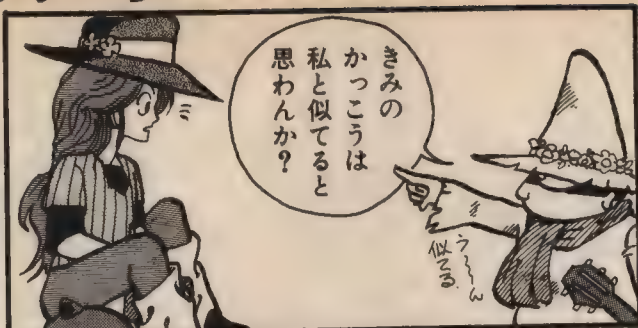 きみの
かっこうは
私と似てると
思わんか？
う〜〜ん
似てる